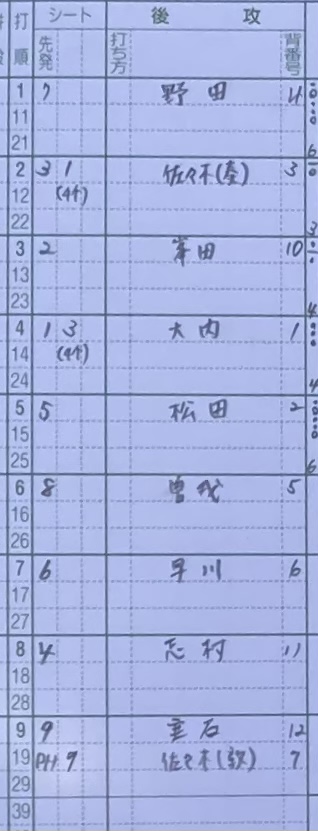 打順 シート 先発 後攻 打ち方 背番号
1 7 野田 4
11
21
2 3 1 佐々木(奏) 3
12 (4オ)
22
3 2 峯田 10
13
23
4 1 3 大内 1
14 (4オ)
24
5 5 松田 2
15
25
6 8 曽我 5
16
26
7 6 早川 6
17
27
8 4 志村 11
18
28
9 9 重石 12
19 PH 9 佐々木 7
29
39